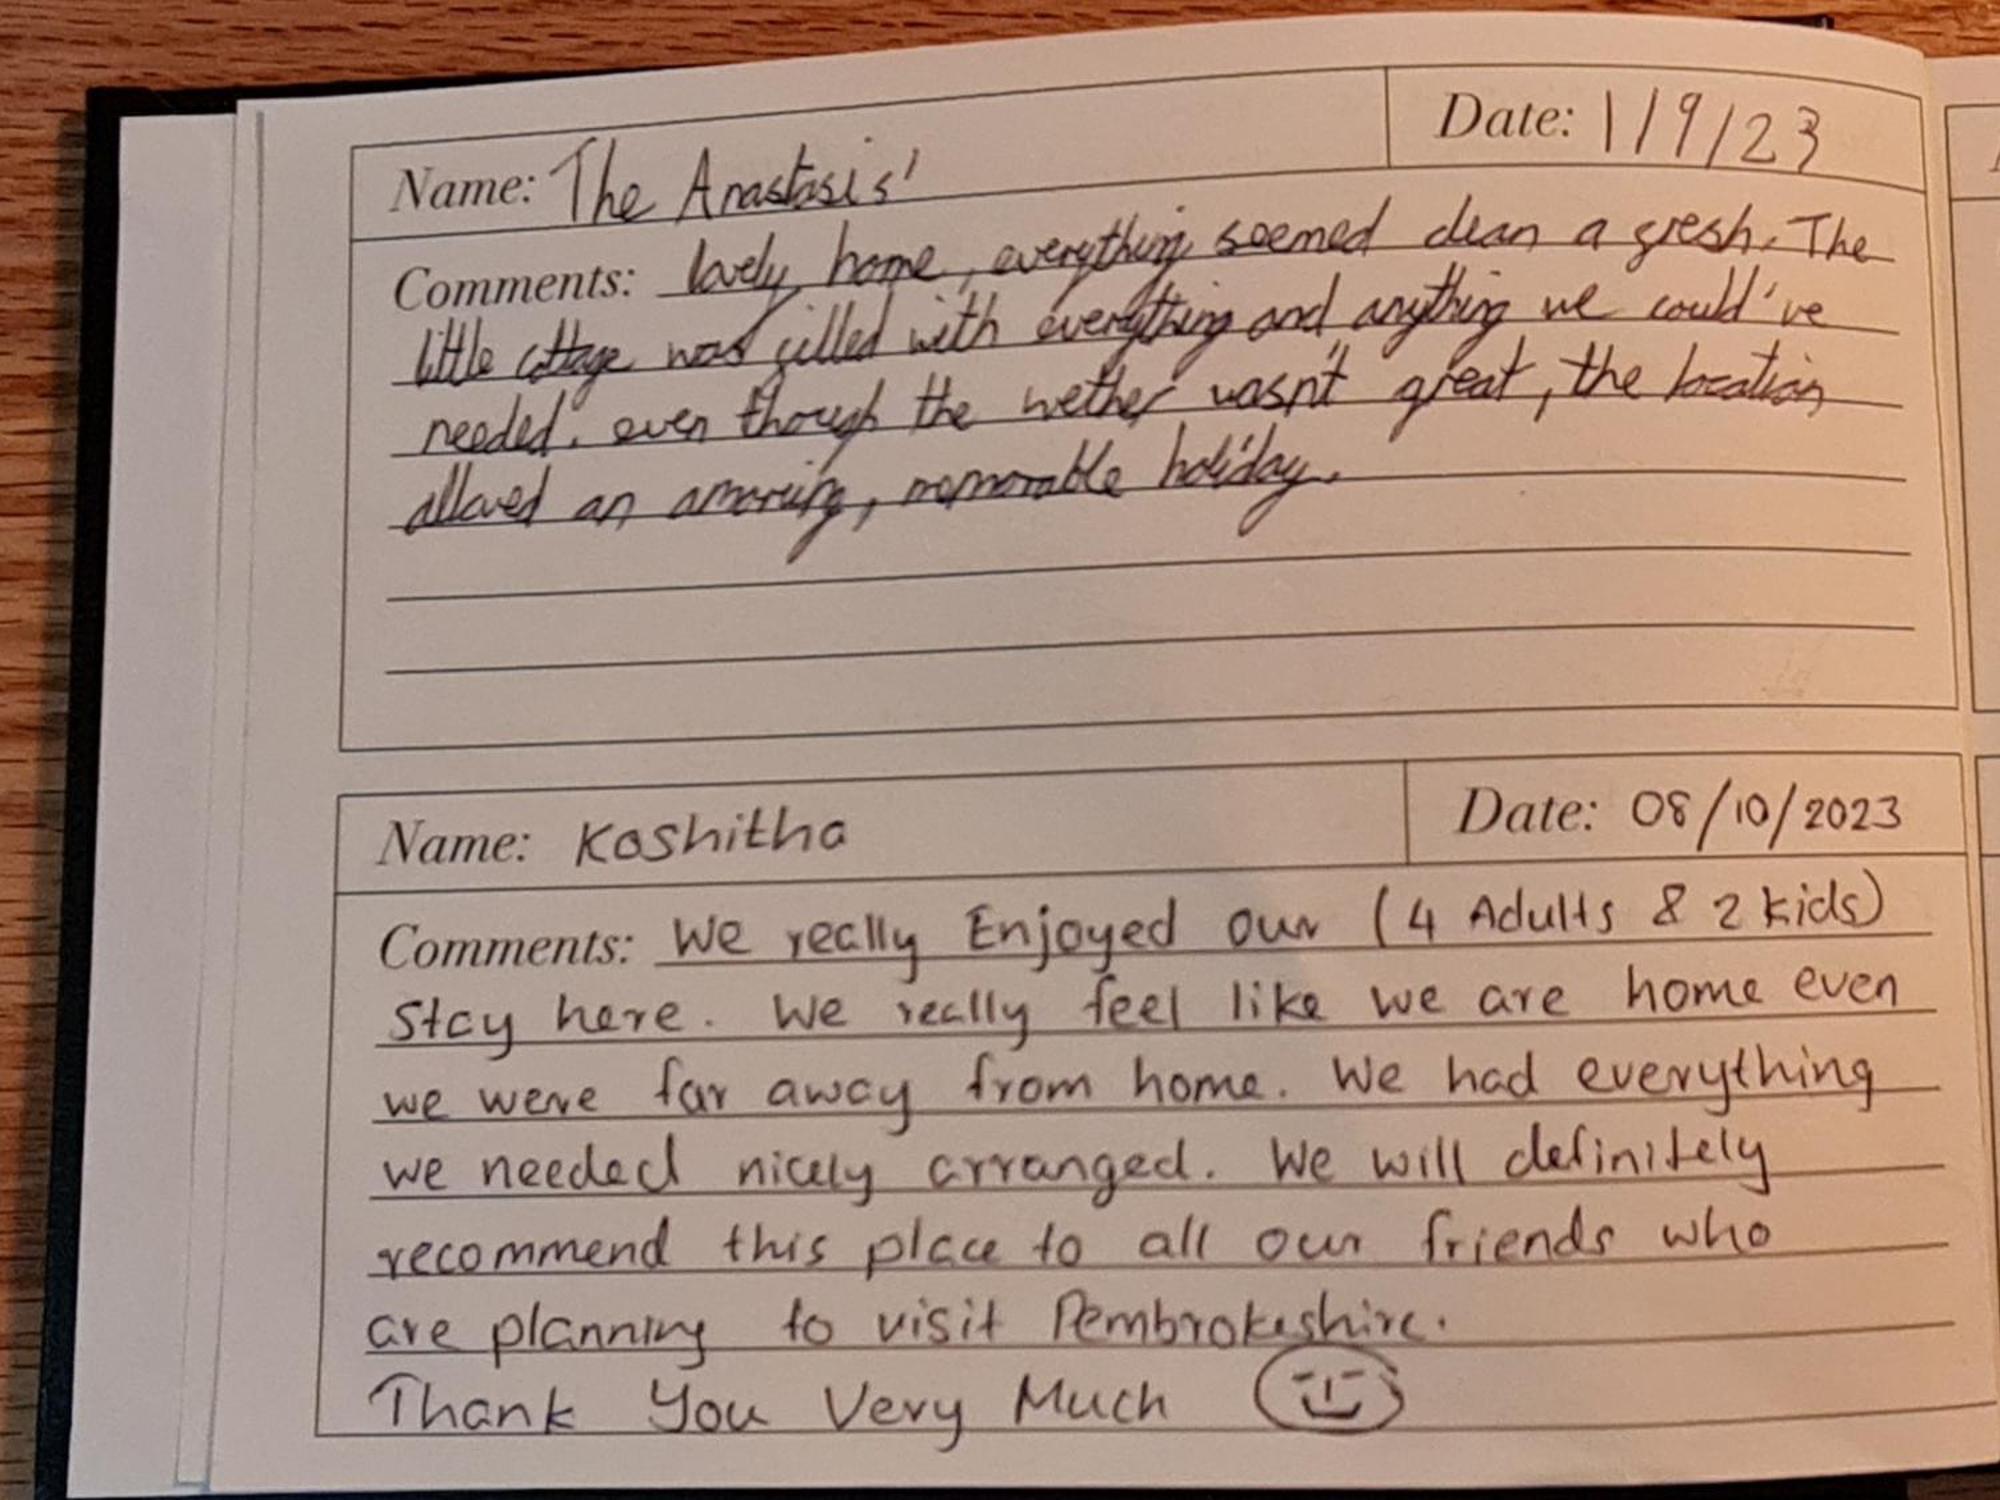 Name: The Anastasis' Date: 1/9/23
Comments: lovely home, everything seemed clean a fresh. The
little cottage was filled with everything and anything we could've
needed. even though the wether wasn't great, the location
allowed an amazing, memorable holiday.
Name: Kashitha Date: 08/10/2023
Comments: We really Enjoyed our (4 Adults & 2 kids)
stay here. We really feel like we are home even
we were far away from home. We had everything
we needed nicely arranged. We will definitely
recommend this place to all our friends who
are planning to visit Pembrokeshire.
Thank You Very Much